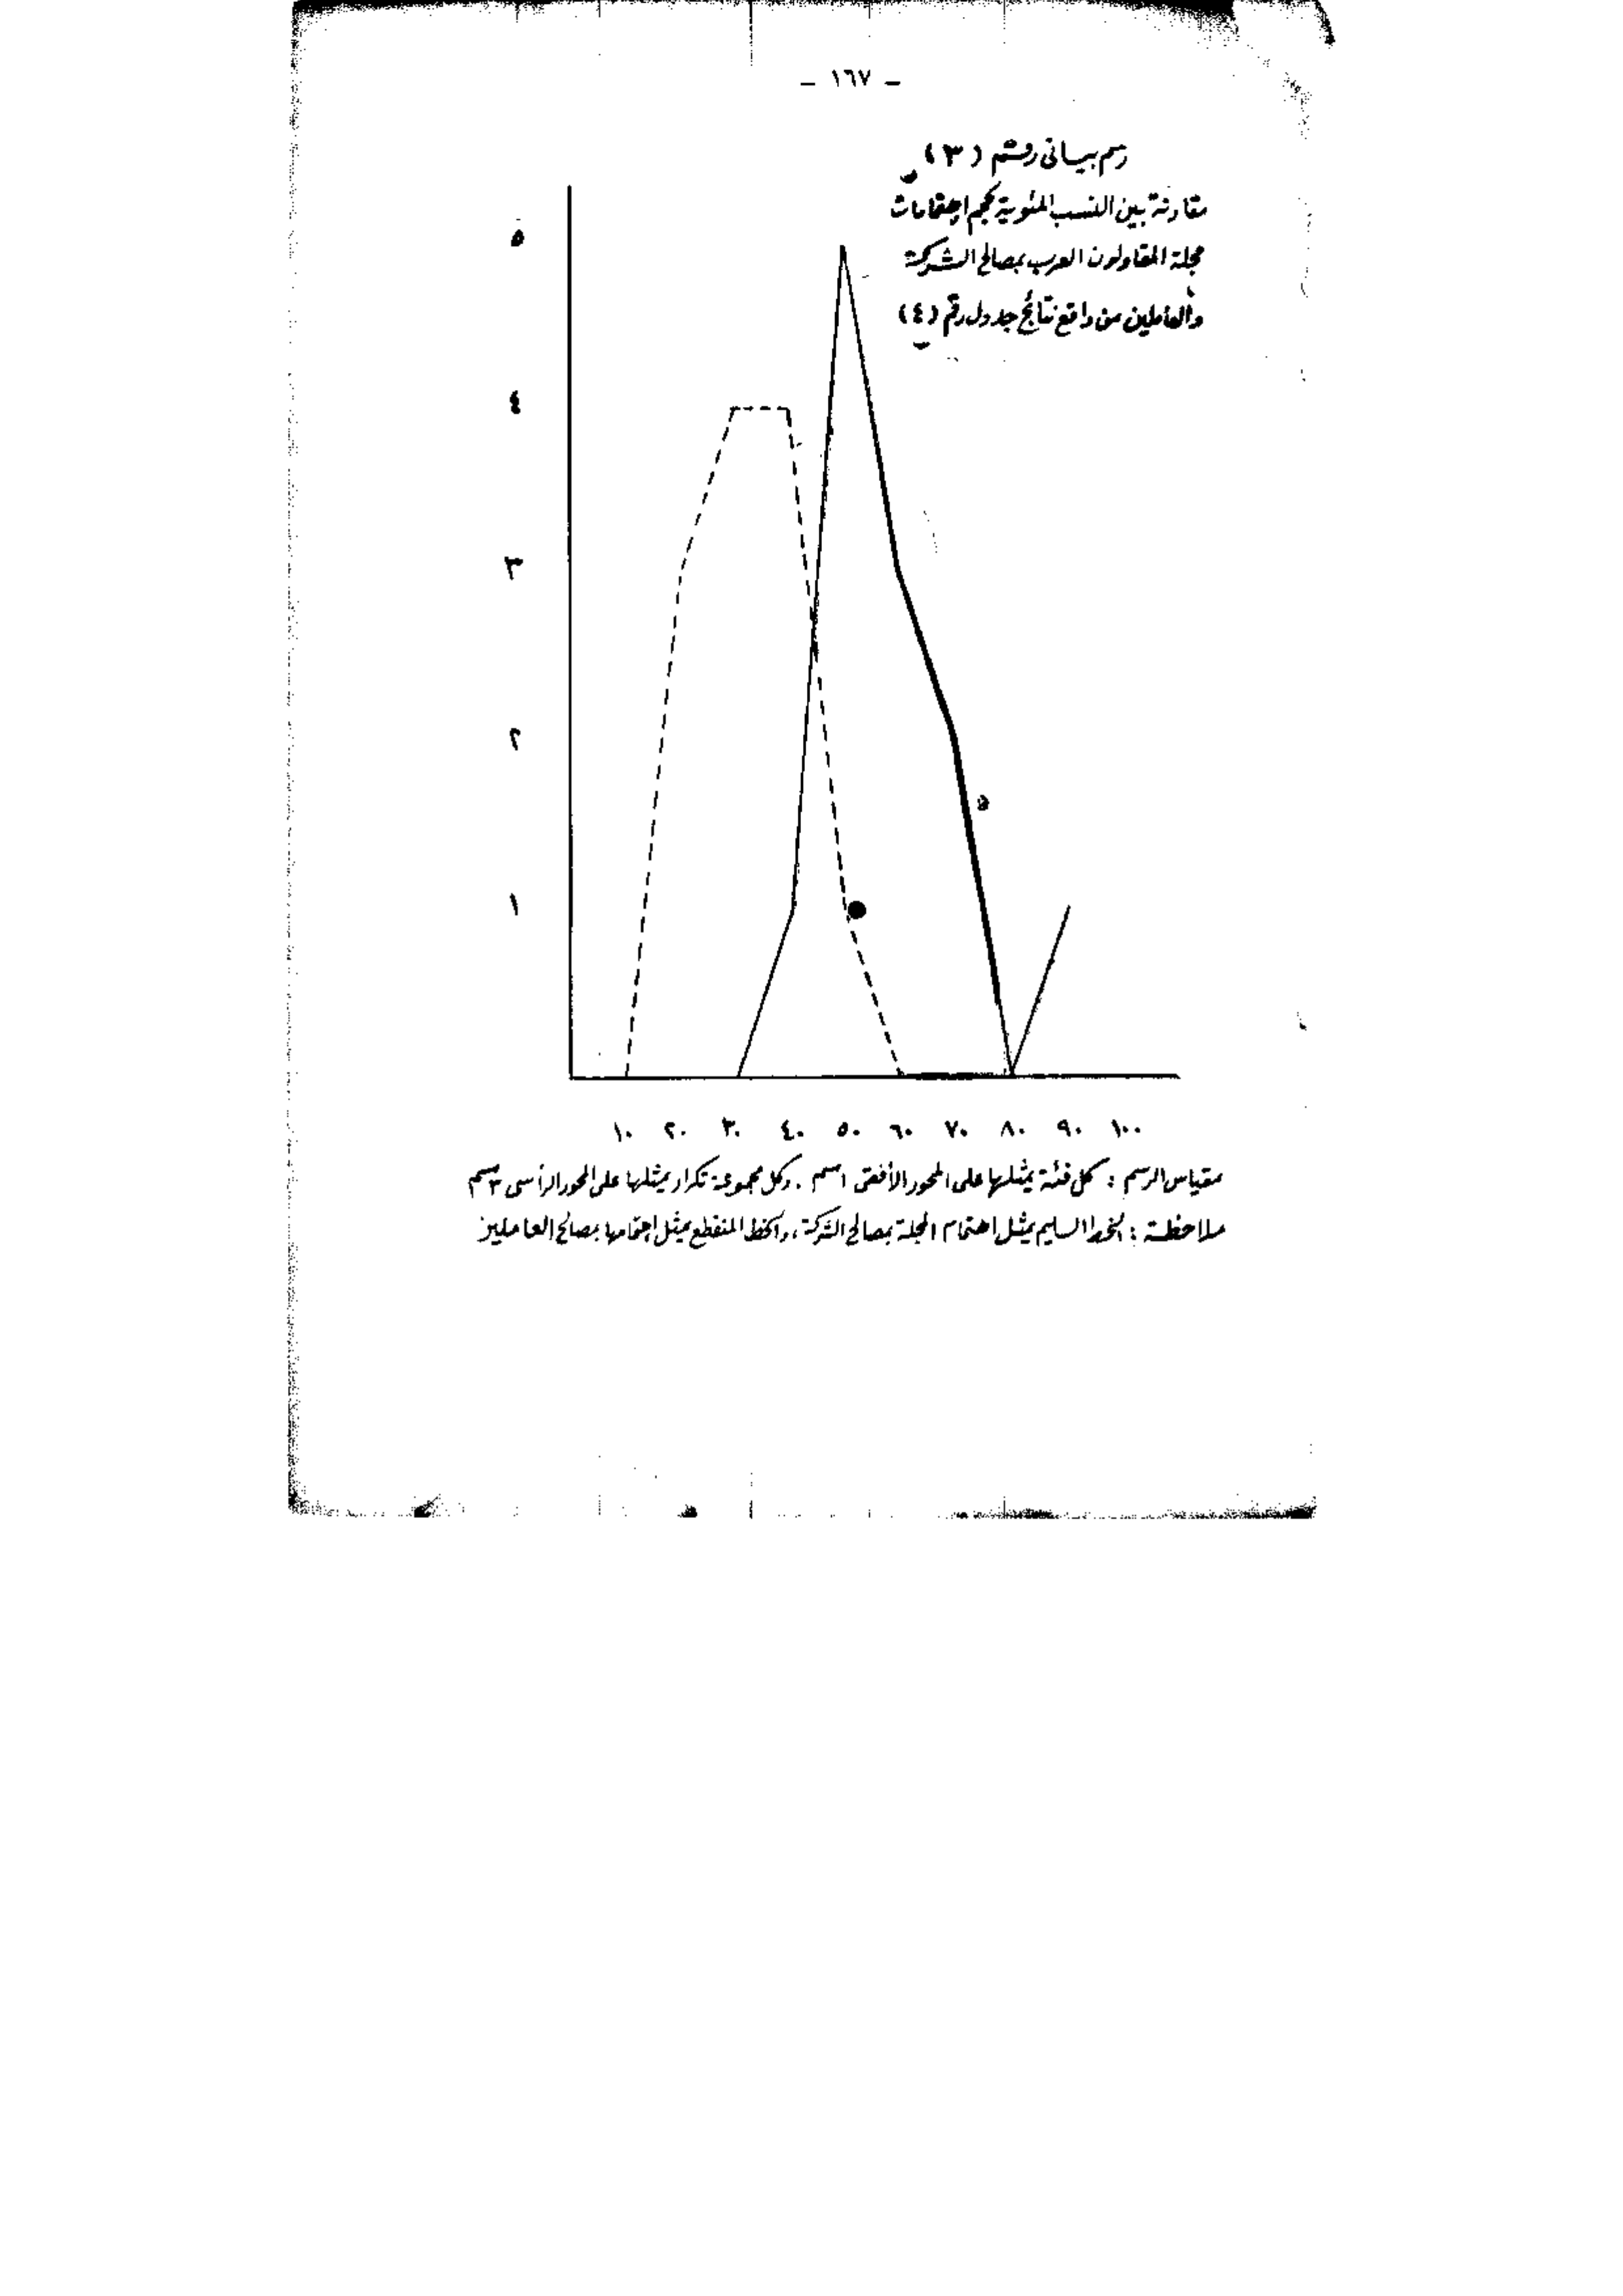 - ١٦٧ -
رسم بيانى رقم (٣)
مقارنة بين النسب المئوية لحجم اهتمامات
مجلة المقاولون العرب بمصالح الشركة
والعاملين من واقع نتائج جدول رقم (٤)
٥
٤
٣
٢
١
١٠ ٢٠ ٣٠ ٤٠ ٥٠ ٦٠ ٧٠ ٨٠ ٩٠ ١٠٠
مقياس الرسم : كل فئة يمثلها على المحور الأفقى ١سم . وكل مجموعة تكرار يمثلها على المحور الرأسى ٣سم
ملاحظة : الخط السليم يمثل اهتمام المجلة بمصالح الشركة ، والخط المنقطع يمثل اهتمامها بمصالح العاملين